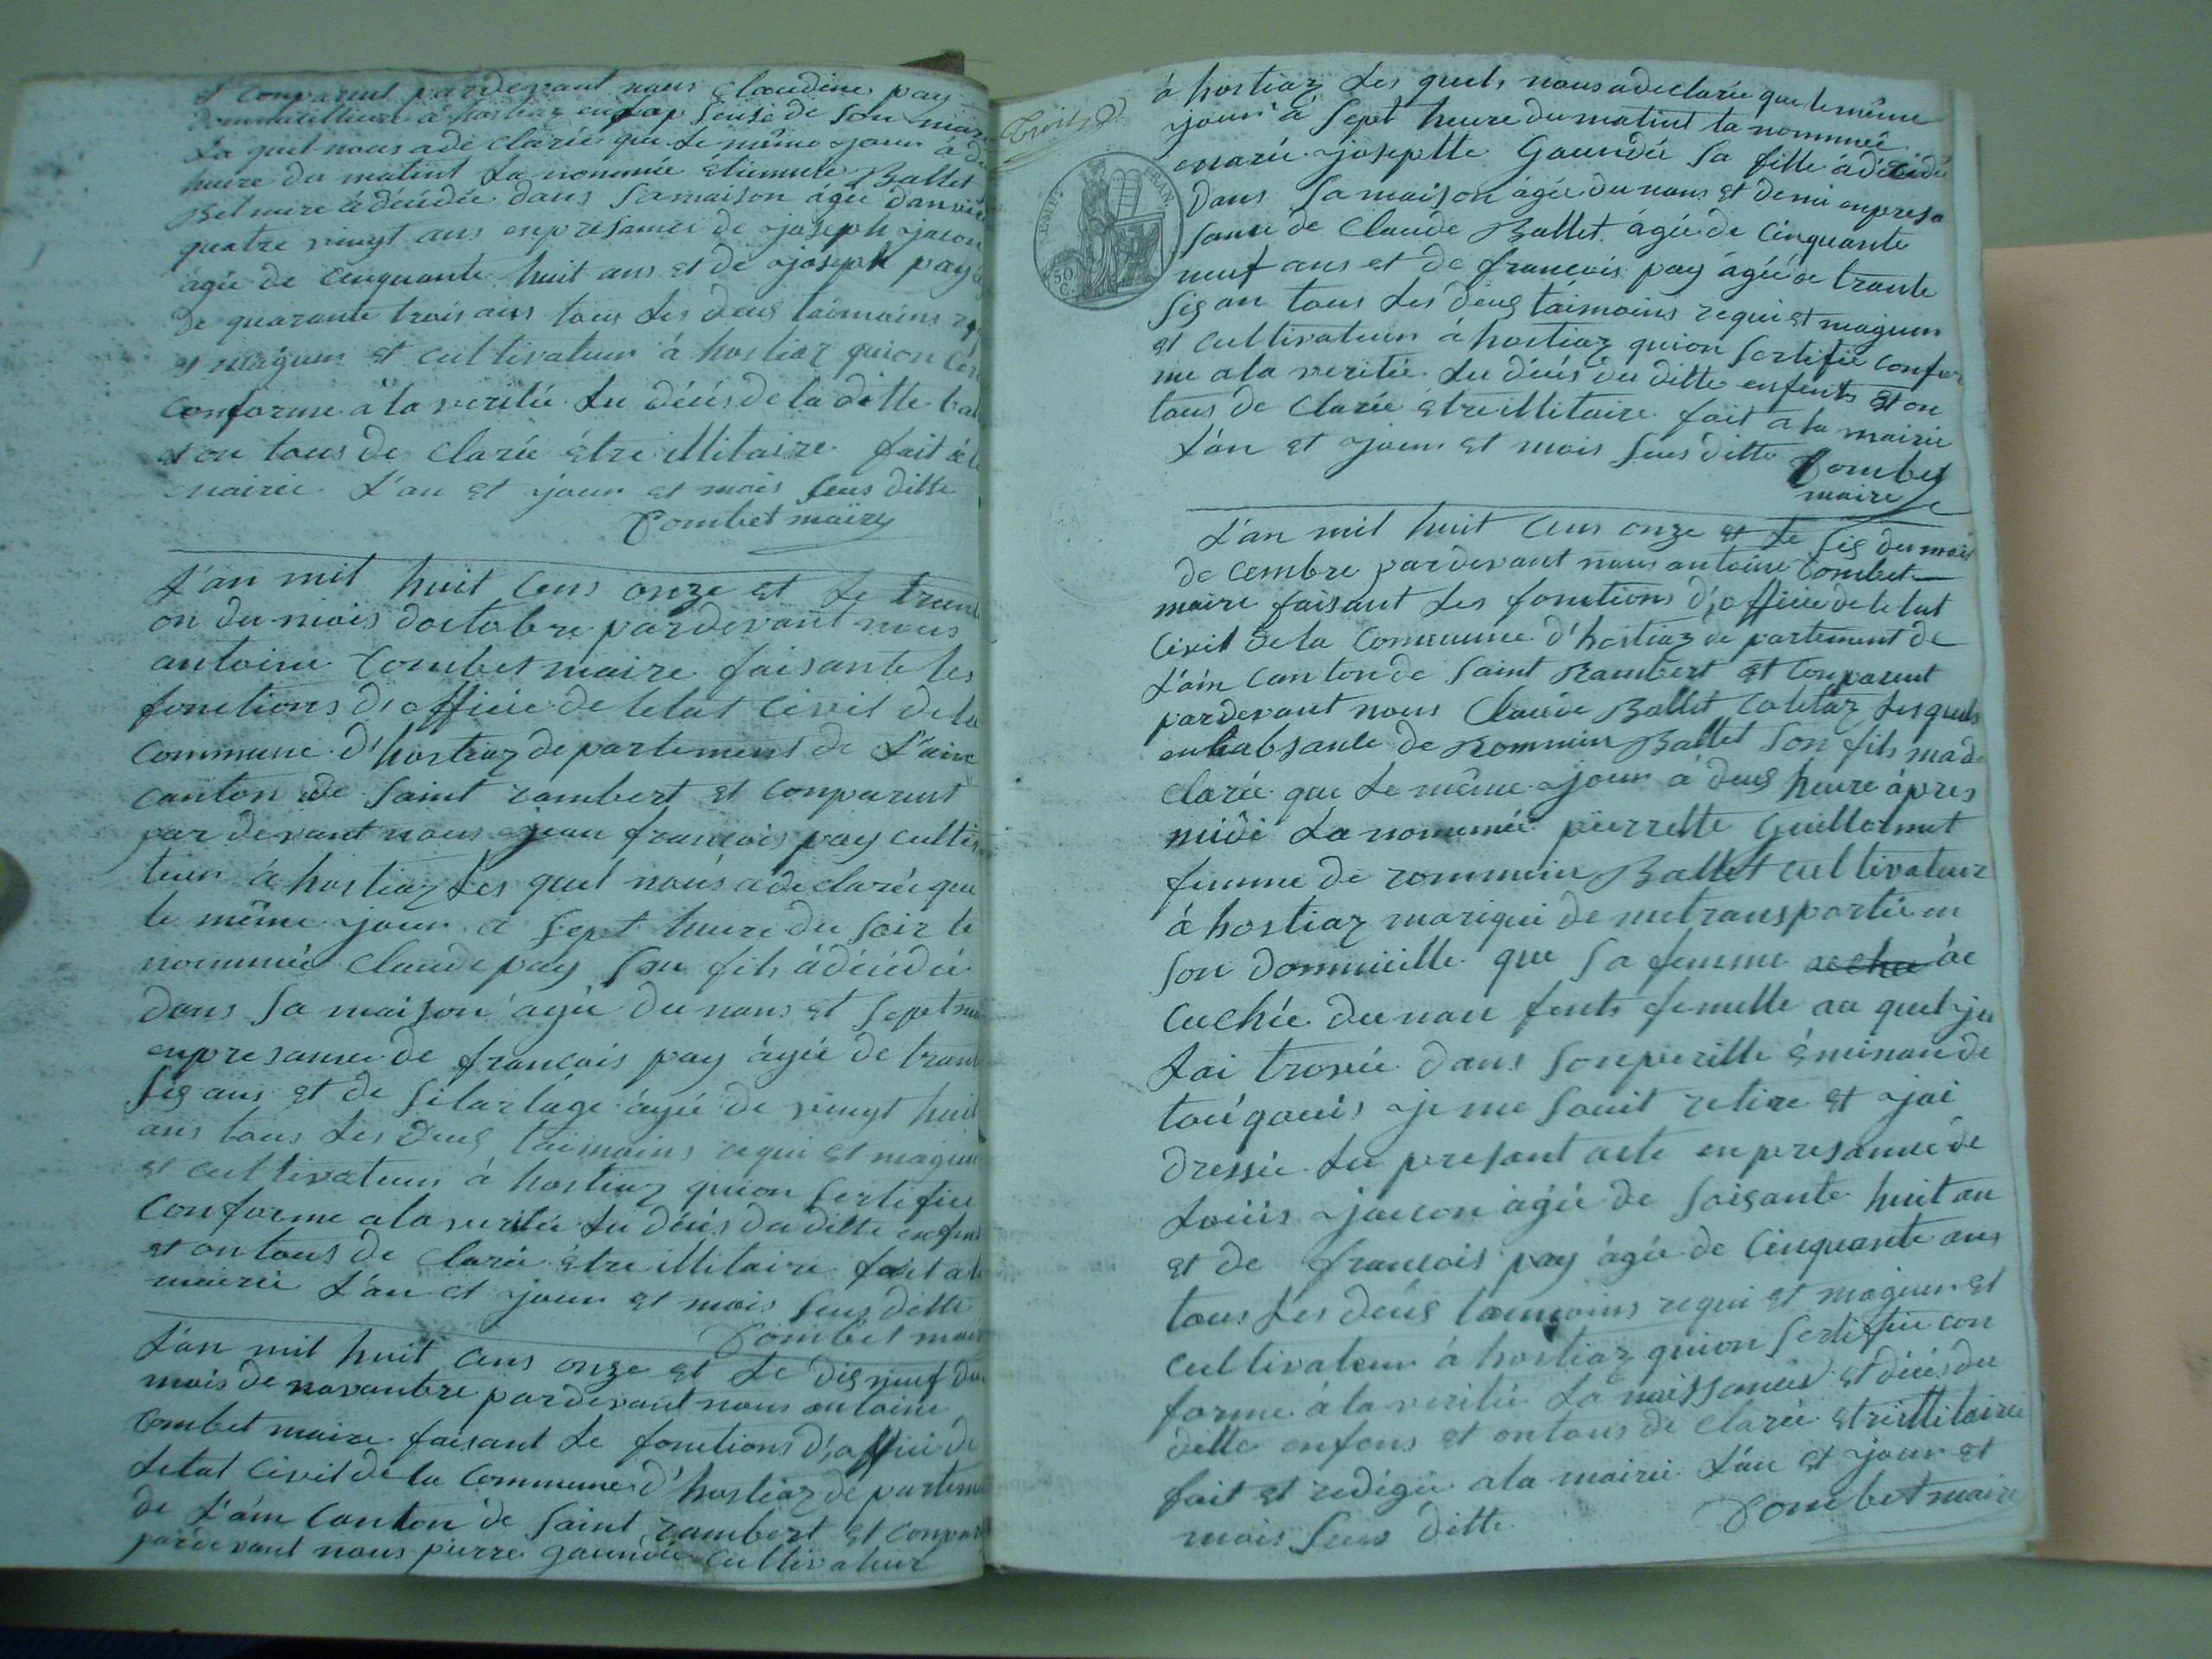 et conparent pardevant nous Claudine pay
dommicilliée à hostiaz en lap sense de son mar
La quel nous a de clarée que le même jour à d
heure du matint La nommée étiennete Ballet
Bel mere à décédée dans sa maison âgée danvi
quatre vingt ans enpresamce de joseph jacon
âgée de cinquante huit ans et de joseph pay
de quarante trois ans tous les deus taimoins
et mageur et cultivateur à hostiaz quion Cér
conforme à la veritée Du décés de la ditte bal
et on tous de clarée être illitaire fait à l
mairie L'an et jour et mois sus ditte
Combet maire
L'an mil huit cens onze et le trent
on du mois doctobre pardevant nous
antoine Combet maire faisante les
fonctions d'officie de letat civil de la
commune d'hostiaz departement de L'ain
canton de saint rambert et conparent
par devant nous jean francois pay cultiv
teur à hostiaz Les quel nous a de clarée que
le même jour à sept heure du soir le
nommée Claude pay son fils à décédée
dans sa maison âgée du nans et sept m
enpresamce de francois pay âgée de trant
sis ans et de âgée de vingt huit
ans tous les deus taimoins requi et mageur
et cultivateur à hostiaz quion sertifiee
conforme a la veritée Du décés du ditte enfent
et on tous de clarée être illitaire fait a la
mairie L'an et jour et mois sus ditte
Combet mair
L'an mil huit cens onze et Le dis neuf du
mois de novanbre pardevant nous antoine
Combet maire faisant Le fonctions d'officie de
Letat civil de la Commune d'hostiaz de partem
de L'ain Canton de saint rambert et conpar
pardevant nous pierre gaundée cultivateur
à hostiaz Les quels nous a declarée que le même
jour à sept heure du matint la nommée
marie josepte Gaundée sa fille à décédée
dans sa maison âgée du nans et demi enpresa
samce de Claude Ballet âgée de Cinquante
neuf ans et de francois pay âgée de trante
sis an tous les deus taimoins requi et mageur
et cultivateur à hostiaz quion sertifiee confor
me a la veritée Du décés du ditte enfents et on
tous de clarée etre illitaire fait a la mairie
L'an et jour et mois sus ditte Combet
maire
TIMP. FRAN.
50 C.
L'an mil huit cens onze et Le sis du mois
de cembre pardevant nous antoine Combet
maire faisant Les fonctions d'officie de letat
Civil de la Commune d'hostiaz de partement de
L'ain canton de saint Rambert et conparent
pardevant nous Claude Ballet Les quels
en labsance de Rommin Ballet son fils ma de
clarée que Le même jour à deus heure àpres
midi La nommée pierrette Guillermet
femme de rommin Ballet cultivateur
à hostiaz mariqui de metransportée en
son dommicille que sa femme ac
cuchée du nan fents femelle au quel je
Lai trovée dans son perille éminan de
je me sui retire et jai
dressée Du presant acte enpresamce de
Loüis jacon âgée de soisante huit an
et de francois pay âgée de cinquante ans
tous Les deus taimoins requi et mageur et
cultivateur à hostiaz quion sertifiee con
forme à la veritée La naissance et décés du
ditte enfens et on tous de clarée etre illitaire
fait et redigée a la mairie L'an et jour et
mois sus ditte Combet maire